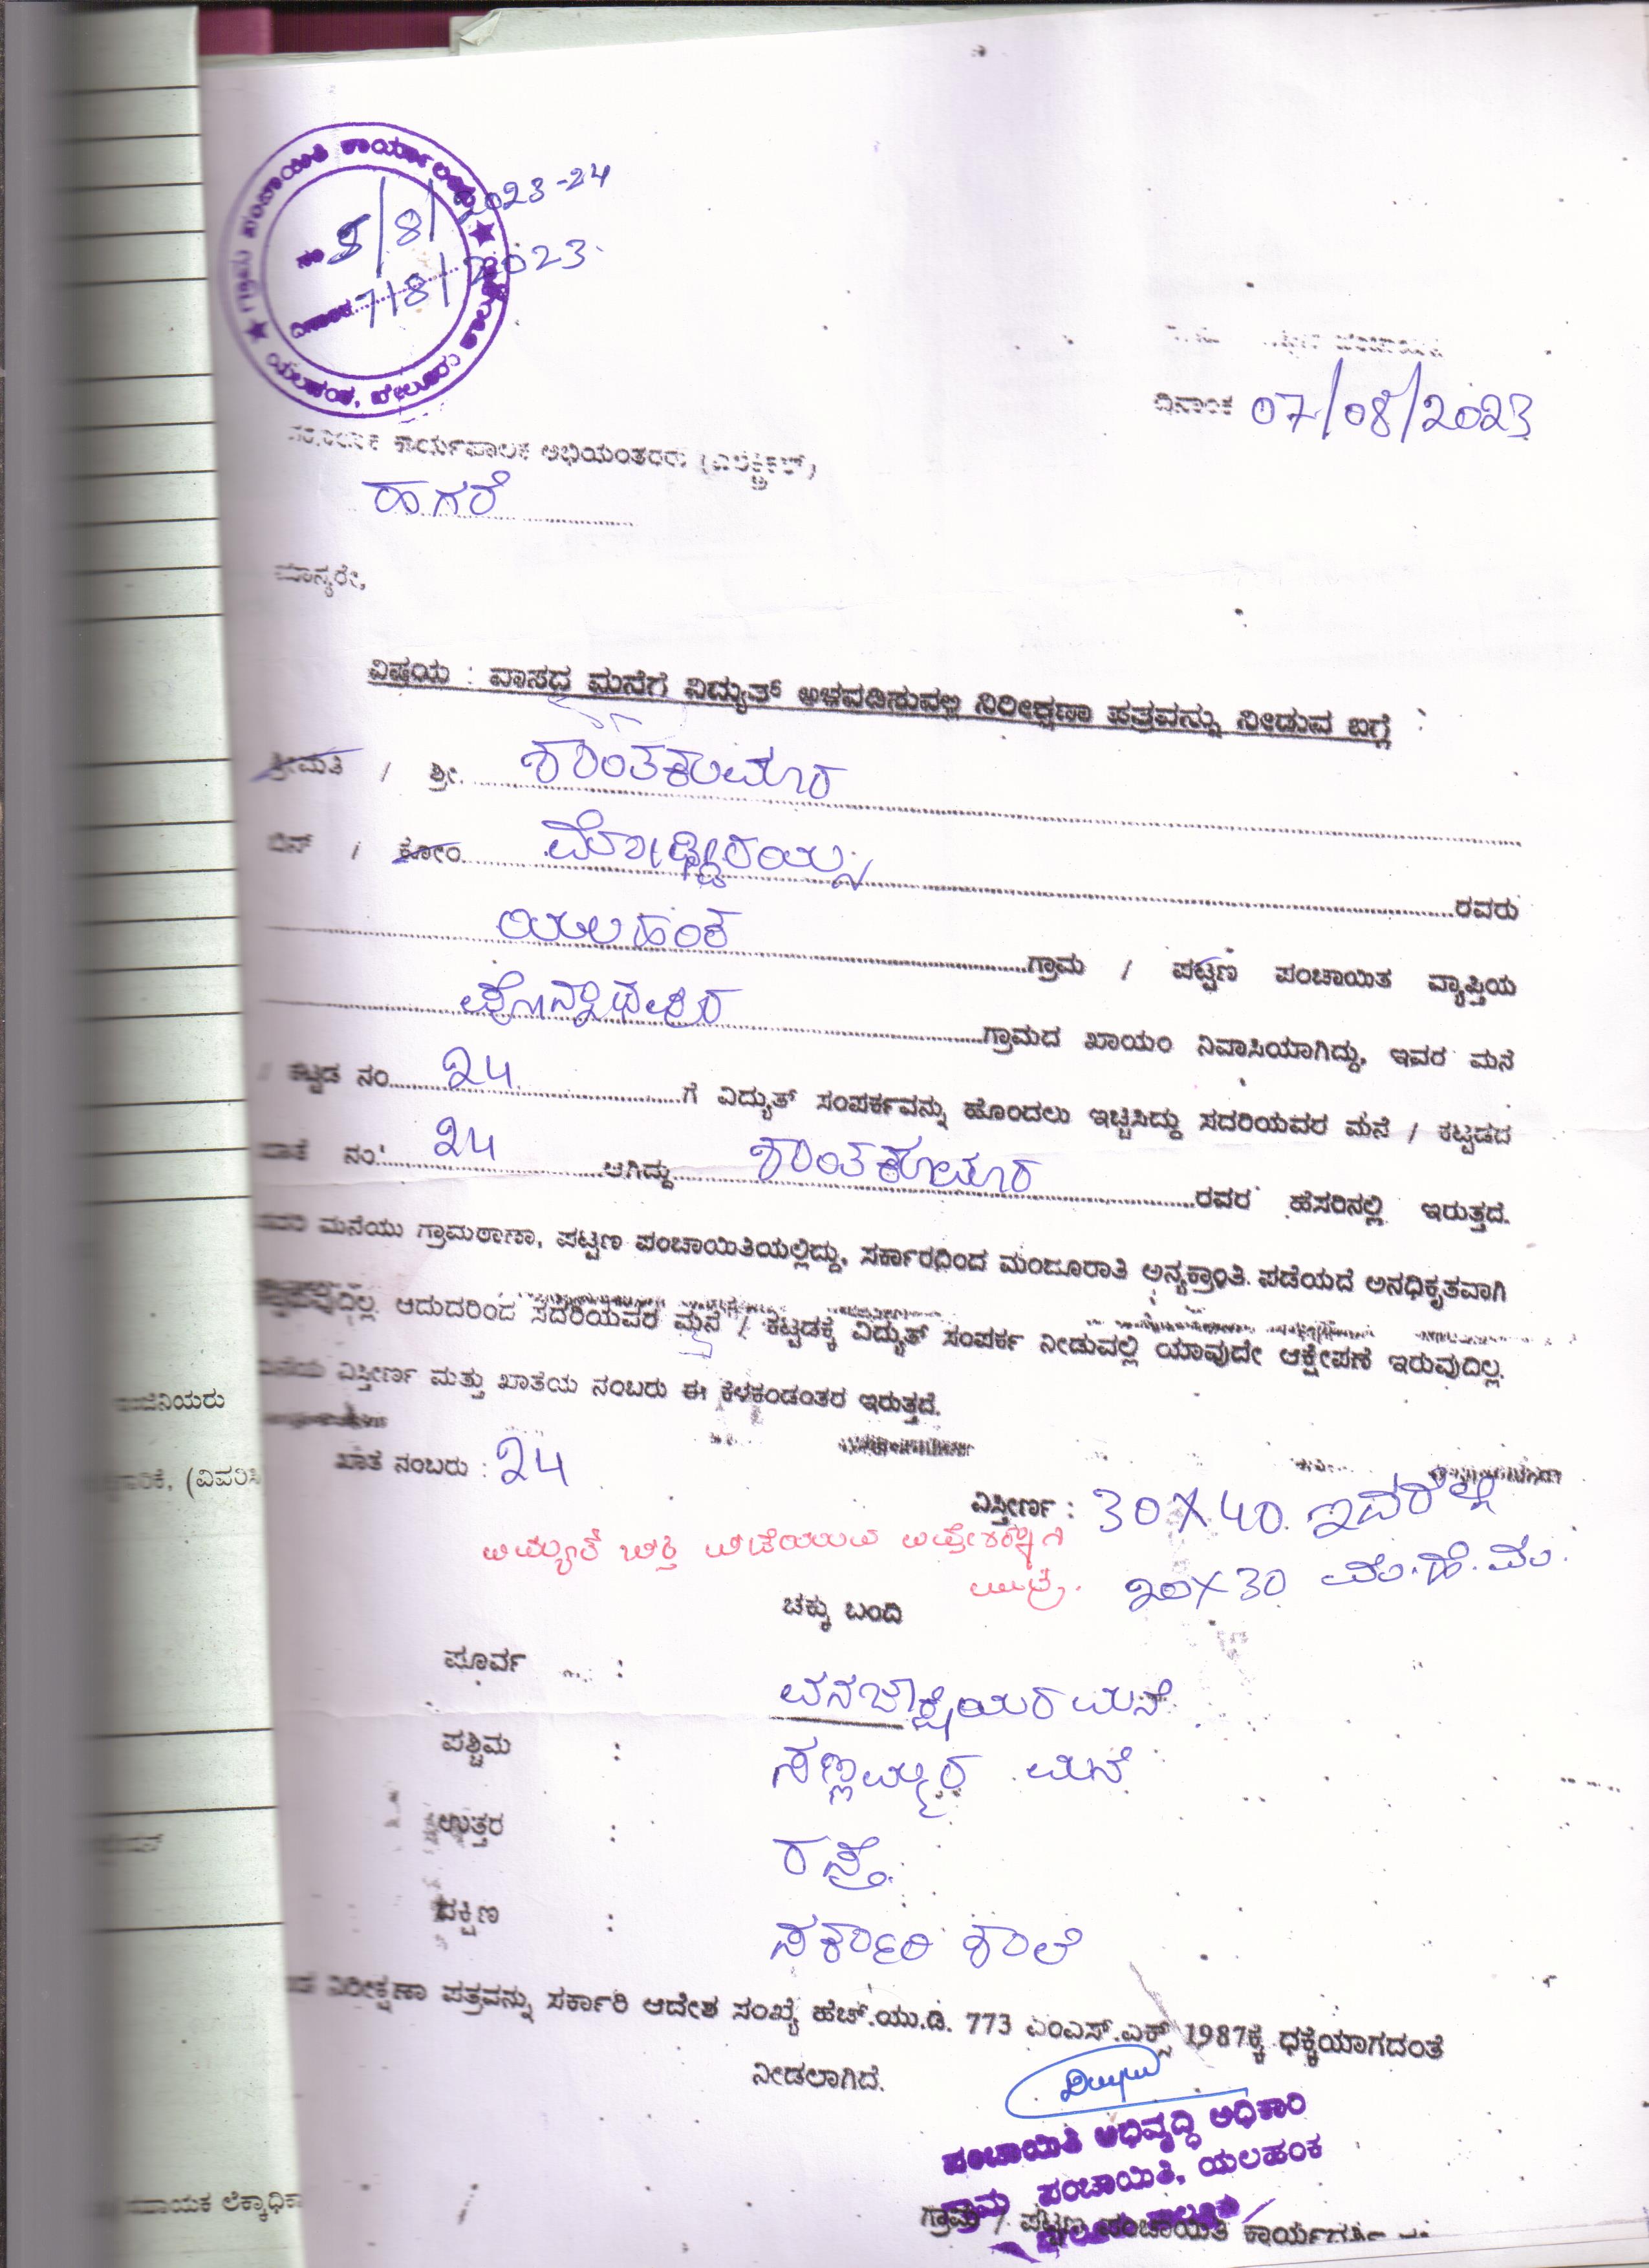 ಗ್ರಾಮ ಪಂಚಾಯಿತಿ ಕಾರ್ಯಾಲಯ
ಯಲಹಂಕ, ಬೇಲೂರು
ನಂ 5/8/2023-24
ದಿನಾಂಕ 7/8/2023
ದಿನಾಂಕ 07/08/2023
ಕಾರ್ಯಪಾಲಕ ಅಭಿಯಂತರರು (ಎಲೆಕ್ಟ್ರಿಕಲ್)
ಹಗರೆ
ಮಾನ್ಯರೇ,
ವಿಷಯ : ವಾಸದ ಮನೆಗೆ ವಿದ್ಯುತ್ ಅಳವಡಿಸುವಲ್ಲಿ ನಿರೀಕ್ಷಣಾ ಪತ್ರವನ್ನು ನೀಡುವ ಬಗ್ಗೆ
ಶ್ರೀಮತಿ / ಶ್ರೀ. ಶಾಂತಕುಮಾರ
ಬಿನ್ / ಕೋಂ. ರವರು
ಯಲಹಂಕ ಗ್ರಾಮ / ಪಟ್ಟಣ ಪಂಚಾಯಿತ ವ್ಯಾಪ್ತಿಯ
ಗ್ರಾಮದ ಖಾಯಂ ನಿವಾಸಿಯಾಗಿದ್ದು, ಇವರ ಮನೆ
/ ಕಟ್ಟಡ ನಂ. 24 ಗೆ ವಿದ್ಯುತ್ ಸಂಪರ್ಕವನ್ನು ಹೊಂದಲು ಇಚ್ಚಿಸಿದ್ದು ಸದರಿಯವರ ಮನೆ / ಕಟ್ಟಡದ
ಖಾತೆ ನಂ. 24 ಆಗಿದ್ದು ಶಾಂತಕುಮಾರ ರವರ ಹೆಸರಿನಲ್ಲಿ ಇರುತ್ತದೆ.
ಸದರಿ ಮನೆಯು ಗ್ರಾಮಠಾಣಾ, ಪಟ್ಟಣ ಪಂಚಾಯಿತಿಯಲ್ಲಿದ್ದು, ಸರ್ಕಾರದಿಂದ ಮಂಜೂರಾತಿ ಅನ್ಯಕ್ರಾಂತಿ. ಪಡೆಯದೆ ಅನಧಿಕೃತವಾಗಿ
ಆದುದರಿಂದ ಸದರಿಯವರ ಮನೆ / ಕಟ್ಟಡಕ್ಕೆ ವಿದ್ಯುತ್ ಸಂಪರ್ಕ ನೀಡುವಲ್ಲಿ ಯಾವುದೇ ಆಕ್ಷೇಪಣೆ ಇರುವುದಿಲ್ಲ.
ಮನೆಯ ವಿಸ್ತೀರ್ಣ ಮತ್ತು ಖಾತೆಯ ನಂಬರು ಈ ಕೆಳಕಂಡಂತರ ಇರುತ್ತದೆ.
ಖಾತೆ ನಂಬರು : 24
ವಿಸ್ತೀರ್ಣ : 30X40. ಇದರಲ್ಲಿ
ವಿದ್ಯುತ್ ಶಕ್ತಿ ಪಡೆಯುವ ಉದ್ದೇಶಕ್ಕಾಗಿ
ಮಾತ್ರ. 20X30 ಮಂ.ಹೆ.ಮಂ.
ಚಕ್ಕು ಬಂದಿ
ಪೂರ್ವ : ವನಜಾಕ್ಷಿಯರ ಮನೆ
ಪಶ್ಚಿಮ : ಸಣ್ಣಮ್ಮರ ಮನೆ
ಉತ್ತರ : ರಸ್ತೆ.
ದಕ್ಷಿಣ : ಸರ್ಕಾರಿ ಶಾಲೆ
ನಿರೀಕ್ಷಣಾ ಪತ್ರವನ್ನು ಸರ್ಕಾರಿ ಆದೇಶ ಸಂಖ್ಯೆ ಹೆಚ್.ಯು.ಡಿ. 773 ಎಂಎಸ್.ಎಕ್ಸ್ 1987ಕ್ಕೆ ಧಕ್ಕೆಯಾಗದಂತೆ
ನೀಡಲಾಗಿದೆ.
ಪಂಚಾಯಿತಿ ಅಭಿವೃದ್ಧಿ ಅಧಿಕಾರಿ
ಗ್ರಾಮ ಪಂಚಾಯಿತಿ, ಯಲಹಂಕ
ಗ್ರಾಮ / ಪಟ್ಟಣ ಪಂಚಾಯಿತಿ